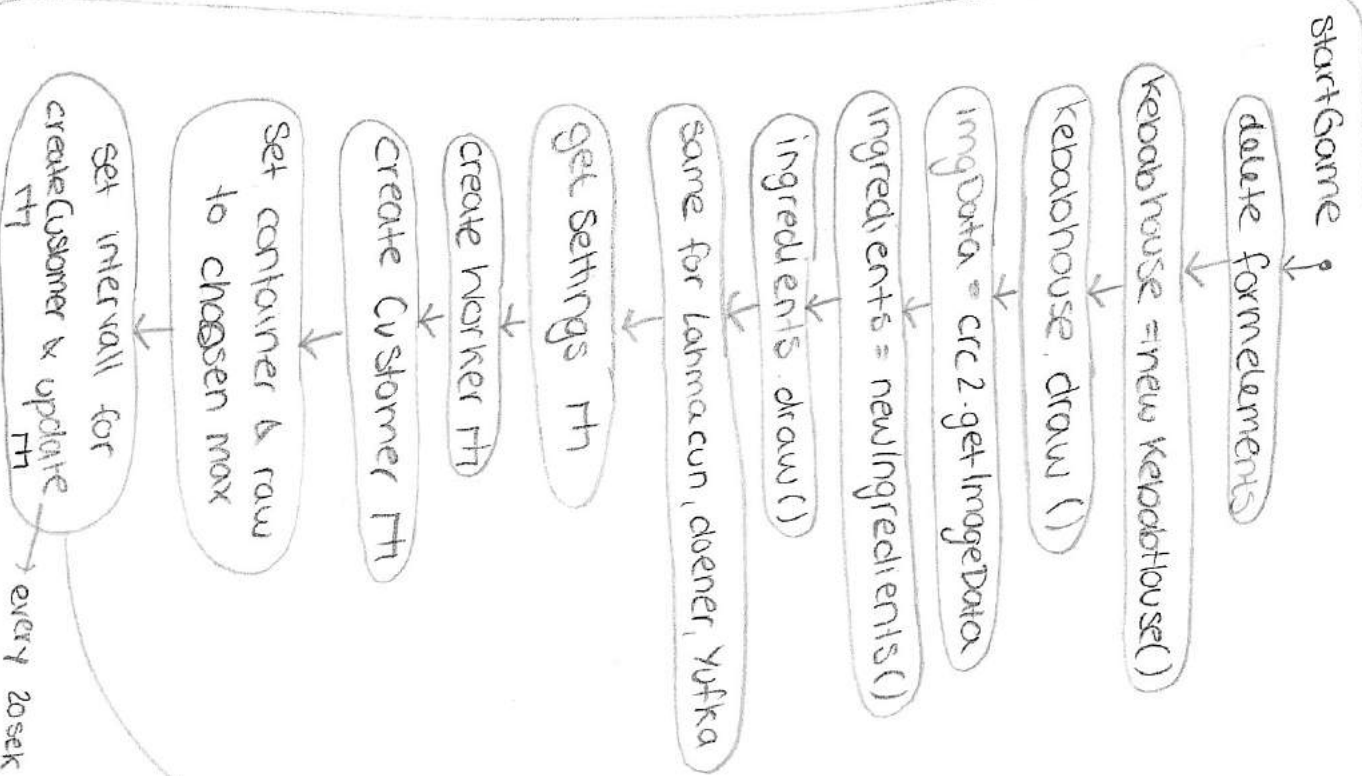 StartGame
delete formelements
kebabhouse = new KebabHouse()
kebabhouse.draw()
imgData = crc2.getImageData
ingredients = newIngredients()
ingredients.draw()
same for Lahmacun, doener, Yufka
get Settings
create Worker
create Customer
Set container & raw
to choosen max
Set intervall for
createCustomer & update
every 20sek